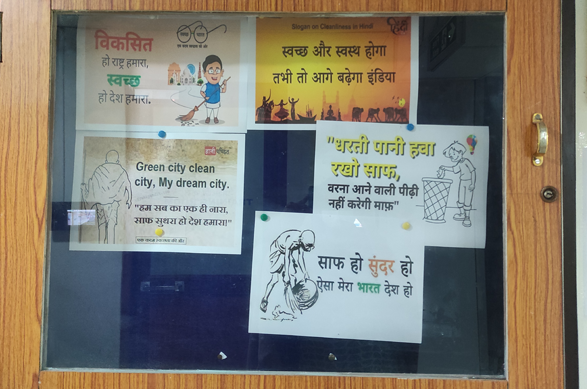 विकसित
हो राष्ट्र हमारा,
स्वच्छ
हो देश हमारा.
Slogan on Cleanliness in Hindi
स्वच्छ और स्वस्थ होगा
तभी तो आगे बढ़ेगा इंडिया
Green city clean
city, My dream city.
"हम सब का एक ही नारा,
साफ सुथरा हो देश हमारा!"
"धरती पानी हवा
रखो साफ,
वरना आने वाली पीढ़ी
नहीं करेगी माफ़"
साफ हो सुंदर हो
ऐसा मेरा भारत देश हो